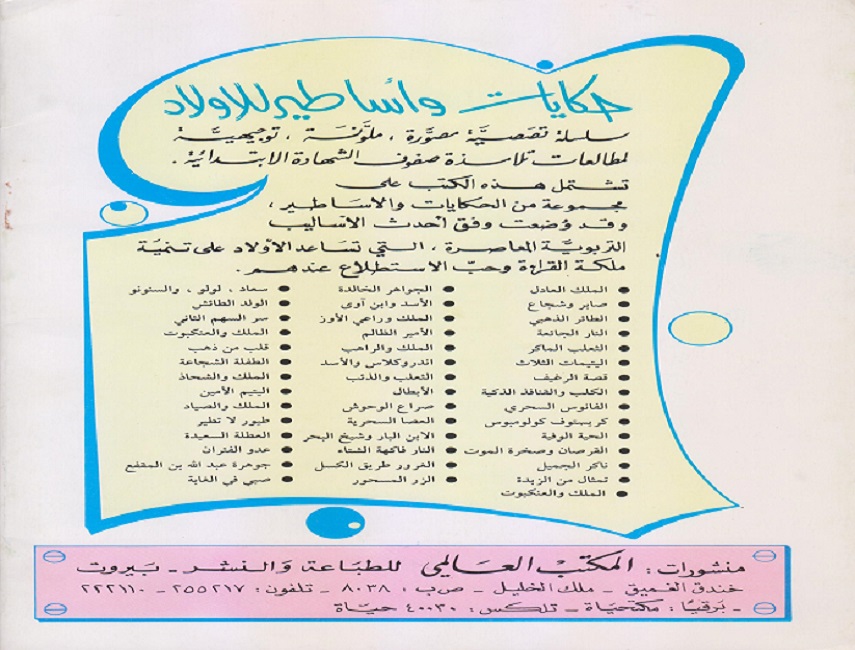 حكايات وأساطير للأولاد
سلسلة قصصيَّة مصوَّرة ، ملوَّنة ، توجيهيَّة
لمطالعات تلامذة صفوف الشهادة الابتدائية .
تشتمل هذه الكتب على
مجموعة من الحكايات والأساطير ،
وقد وُضعت وفق أحدث الأساليب
التربويَّة المعاصرة ، التي تساعد الأولاد على تنمية
ملكة القراءة وحبّ الاستطلاع عندهم .
● الملك العادل
● صابر وشجاع
● الطائر الذهبي
● النار الجائعة
● الثعلب الماكر
● اليتيمات الثلاث
● قصة الرغيف
● الكلب والقنافذ الذكية
● الفانوس السحري
● كريستوف كولومبوس
● الحية الوفية
● القرصان وصخرة الموت
● ناكر الجميل
● تمثال من الزبدة
● الملك والعنكبوت
● الجواهر الخالدة
● الأسد وابن آوى
● الملك وراعي الأوز
● الأمير الظالم
● الملك والراهب
● اندروكلاس والأسد
● الثعلب والذئب
● الأبطال
● صراع الوحوش
● العصا السحرية
● الابن البار وشيخ البحر
● النار فاكهة الشتاء
● الغرور طريق الكسل
● الزر المسحور
● سعاد ، لولو ، والسنونو
● الولد الطائش
● سر السهم الثاني
● الملك والعنكبوت
● قلب من ذهب
● الطفلة الشجاعة
● الملك والشحاذ
● اليتيم الأمين
● الملك والصياد
● طيور لا تطير
● العطلة السعيدة
● عدو الفئران
● جوهرة عبد الله بن المقفع
● صبي في الغابة
منشورات : المكتب العالمي للطباعة والنشر - بيروت
خندق الغميق - ملك الخليل - ص.ب : ٨٠٣٨ - تلفون : ٢٥٥٢١٧ - ٢٢٢١١٠
- برقيًا : مكتحياة - تلكس : ٤٠٠٣٠ حياة